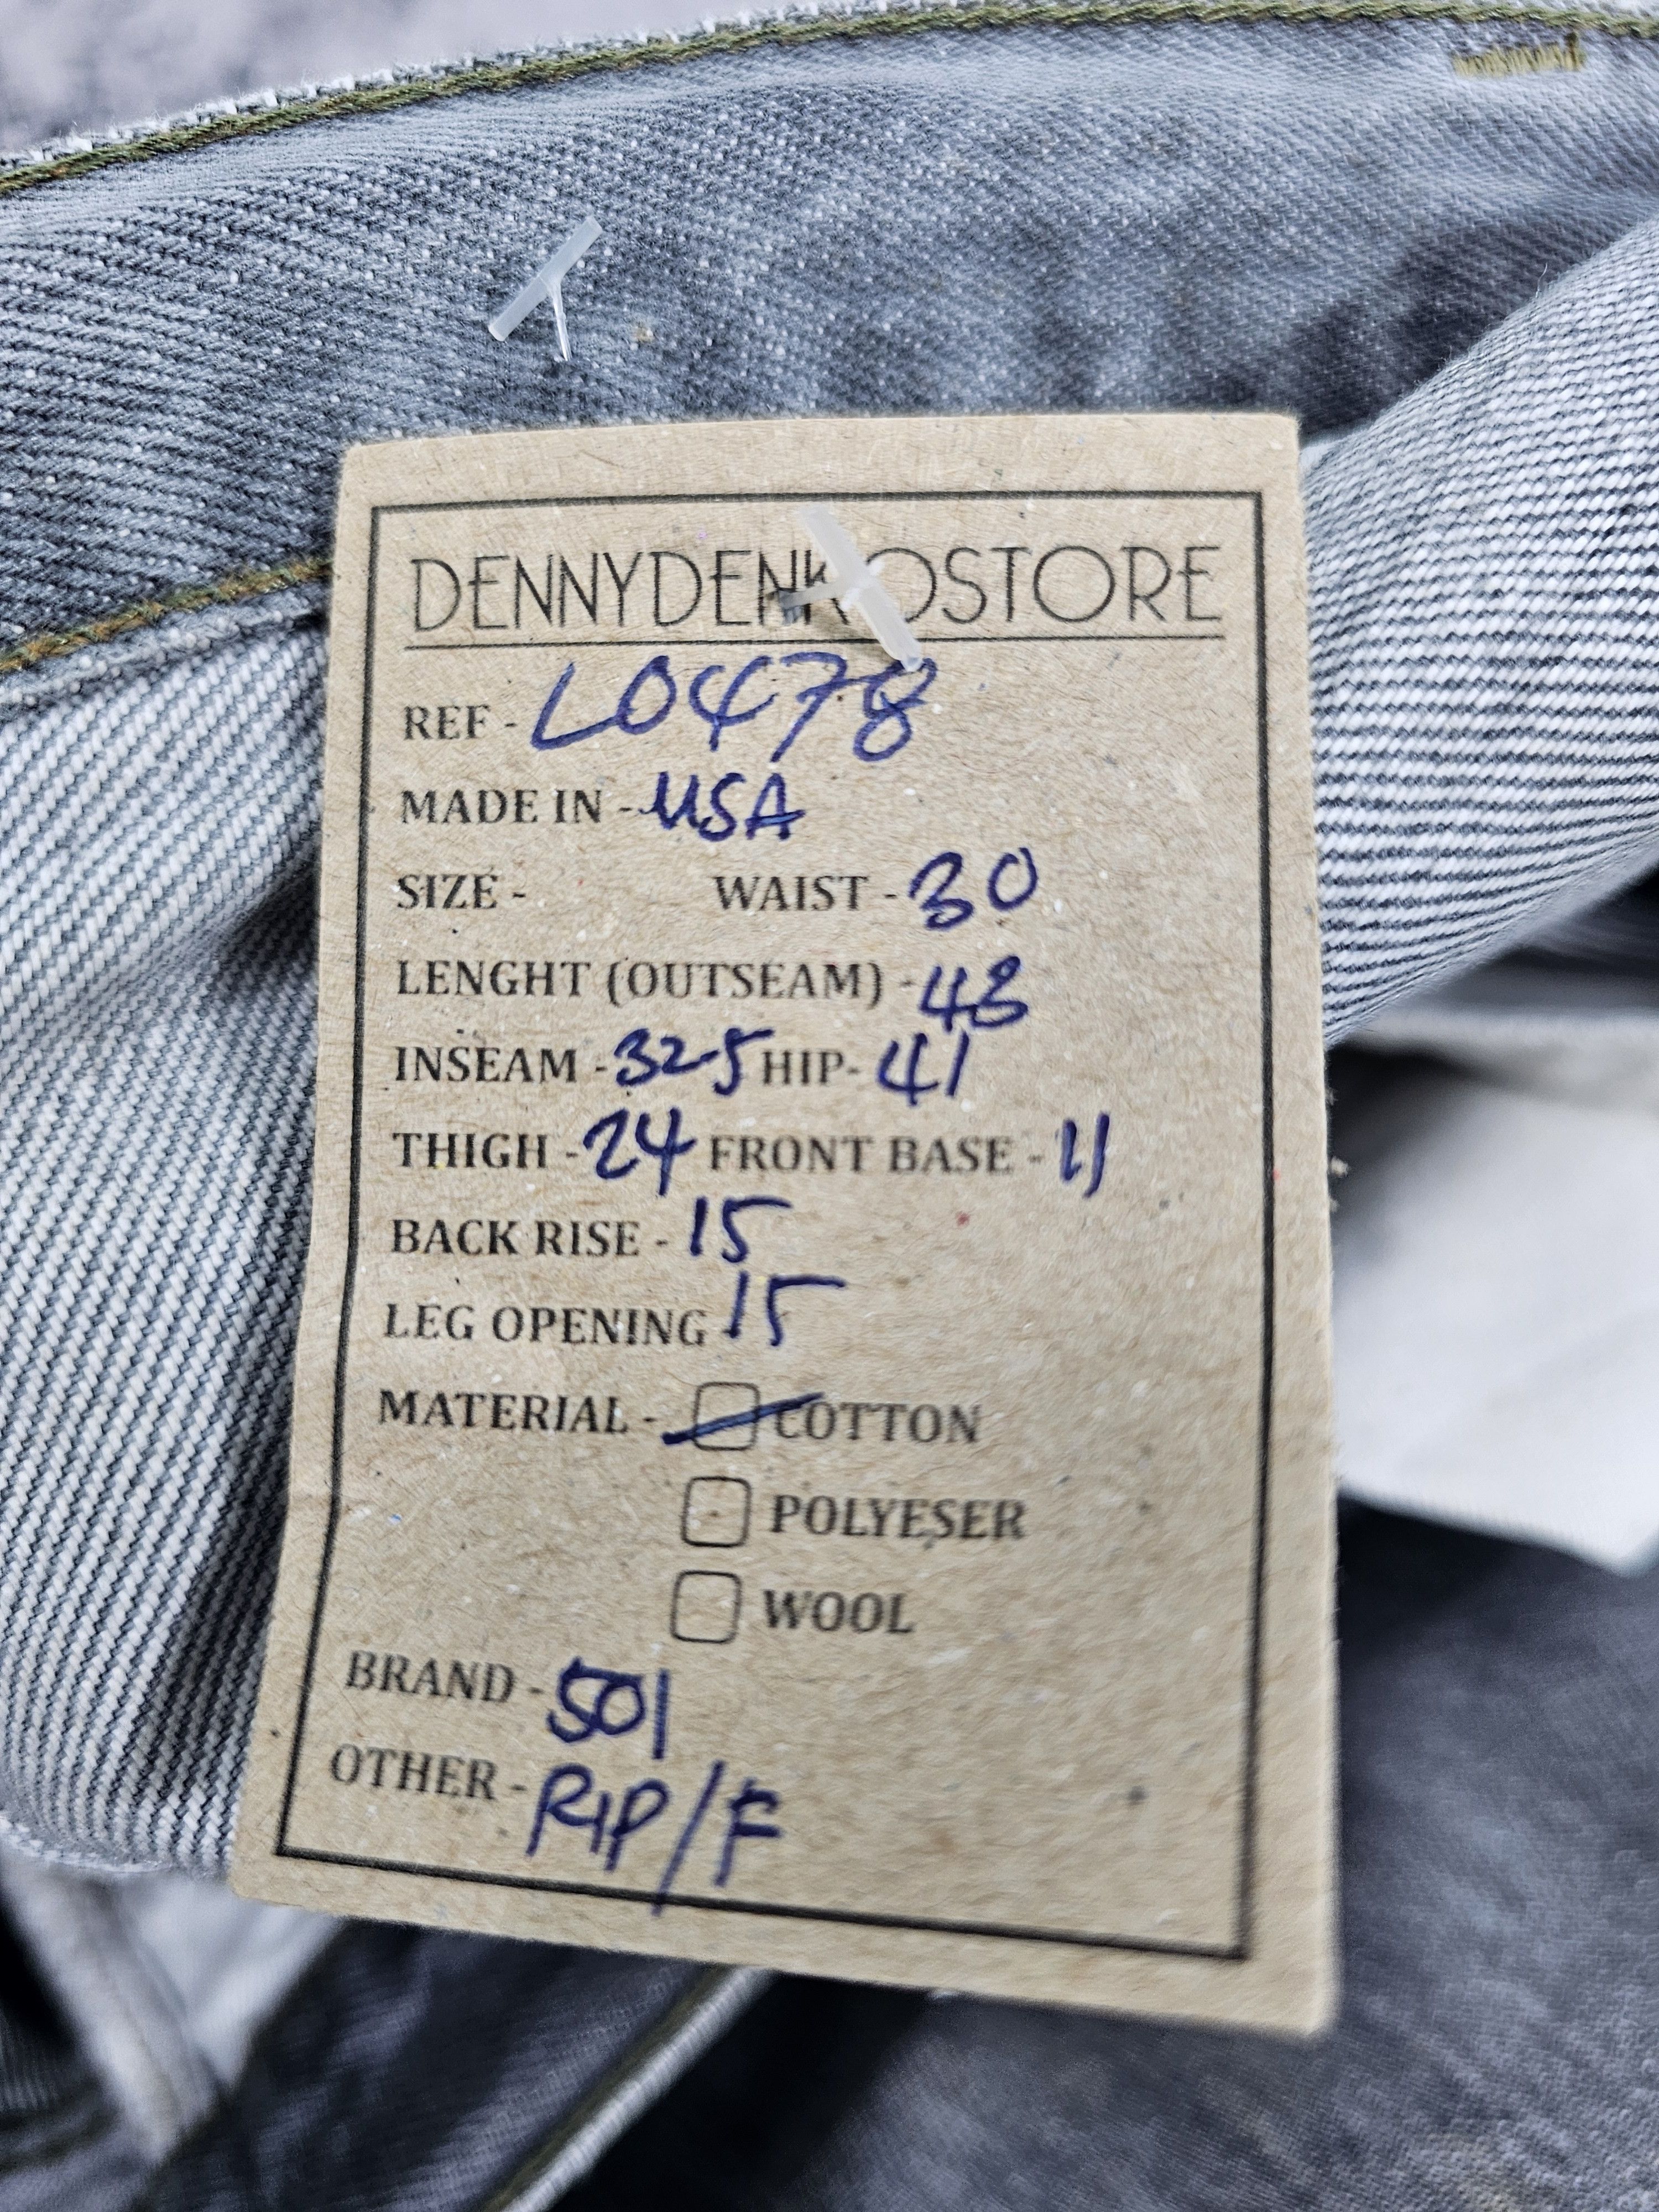 DENNYDENKOSTORE
REF - L0478
MADE IN - USA
SIZE - WAIST - 30
LENGHT (OUTSEAM) - 43
INSEAM - 32.5 HIP- 41
THIGH - 24 FRONT BASE - 11
BACK RISE - 15
LEG OPENING - 15
MATERIAL - COTTON
POLYESER
WOOL
BRAND - 501
OTHER - RIP/F